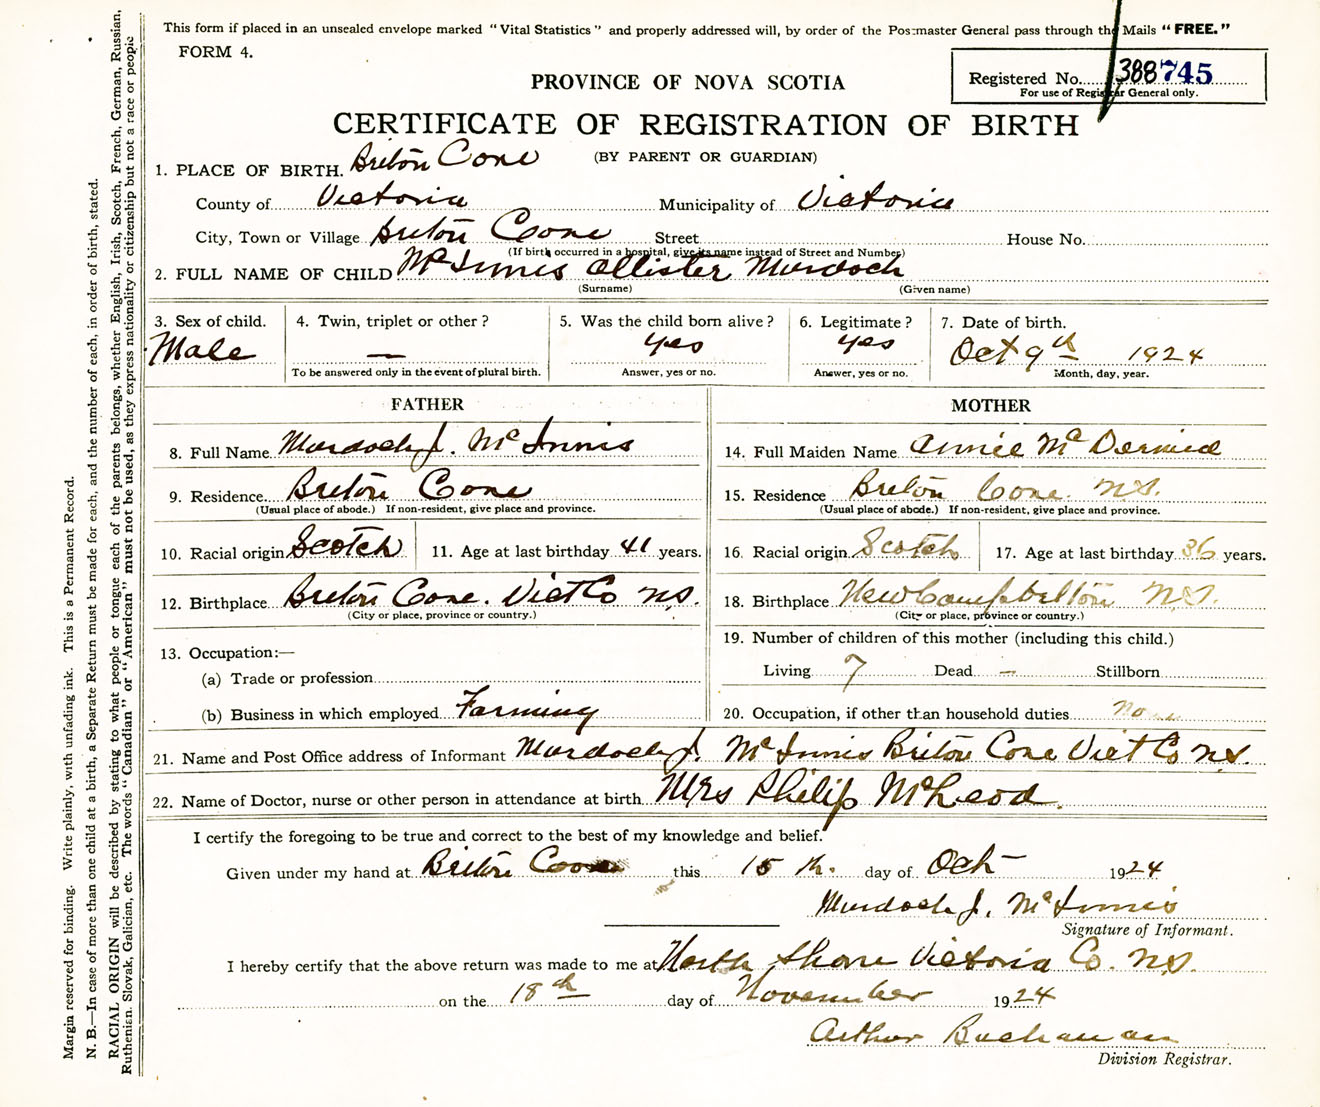 This form if placed in an unsealed envelope marked "Vital Statistics" and properly addressed will, by order of the Postmaster General pass through the Mails "FREE."
FORM 4.
Registered No. 388745
For use of Registrar General only.
PROVINCE OF NOVA SCOTIA
CERTIFICATE OF REGISTRATION OF BIRTH
(BY PARENT OR GUARDIAN)
1. PLACE OF BIRTH. Briton Cove
County of Victoria Municipality of Victoria
City, Town or Village Briton Cove Street House No.
(If birth occurred in a hospital, give its name instead of Street and Number)
2. FULL NAME OF CHILD McInnis Allister Murdoch
(Surname) (Given name)
3. Sex of child. 4. Twin, triplet or other? 5. Was the child born alive? 6. Legitimate? 7. Date of birth.
Male — Yes Yes Oct 9th 1924
To be answered only in the event of plural birth. Answer, yes or no. Answer, yes or no. Month, day, year.
FATHER
8. Full Name Murdoch J. McInnis
9. Residence Breton Cove
(Usual place of abode.) If non-resident, give place and province.
10. Racial origin Scotch 11. Age at last birthday 41 years.
12. Birthplace Breton Cove. Vict Co N.S.
(City or place, province or country.)
13. Occupation:—
(a) Trade or profession
(b) Business in which employed Farming
MOTHER
14. Full Maiden Name Annie McDermid
15. Residence Breton Cove. N.S.
(Usual place of abode.) If non-resident, give place and province.
16. Racial origin Scotch 17. Age at last birthday 36 years.
18. Birthplace New Campbelton N.S.
(City or place, province or country.)
19. Number of children of this mother (including this child.)
Living 7 Dead — Stillborn
20. Occupation, if other than household duties
21. Name and Post Office address of Informant Murdoch J. McInnis Briton Cove Vict Co N.S.
22. Name of Doctor, nurse or other person in attendance at birth Mrs Philip McLeod.
I certify the foregoing to be true and correct to the best of my knowledge and belief.
Given under my hand at Briton Cove this 15th. day of Oct 1924
Murdoch J. McInnis
Signature of Informant.
I hereby certify that the above return was made to me at North Shore Victoria Co. N.S.
on the 18th day of November 1924
Arthur Buchanan
Division Registrar.
Margin reserved for binding. Write plainly, with unfading ink. This is a Permanent Record.
N. B.—In case of more than one child at a birth, a Separate Return must be made for each, and the number of each, in order of birth, stated.
RACIAL ORIGIN will be described by stating to what people or tongue each of the parents belongs, whether English, Irish, Scotch, French, German, Russian,
Ruthenian, Slovak, Galician, etc. The words "Canadian" or "American" must not be used, as they express nationality or citizenship but not a race or people